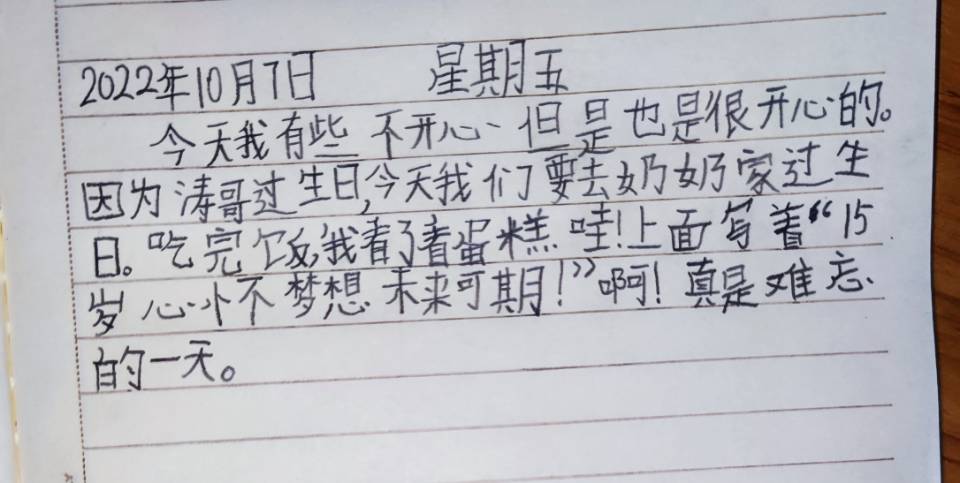 2022年10月7日 星期五
今天我有些不开心、但是也是很开心的。
因为涛哥过生日,今天我们要去奶奶家过生
日。吃完饭,我看了看蛋糕哇!上面写着“15
岁心小不梦想未来可期!”啊!真是难忘
的一天。